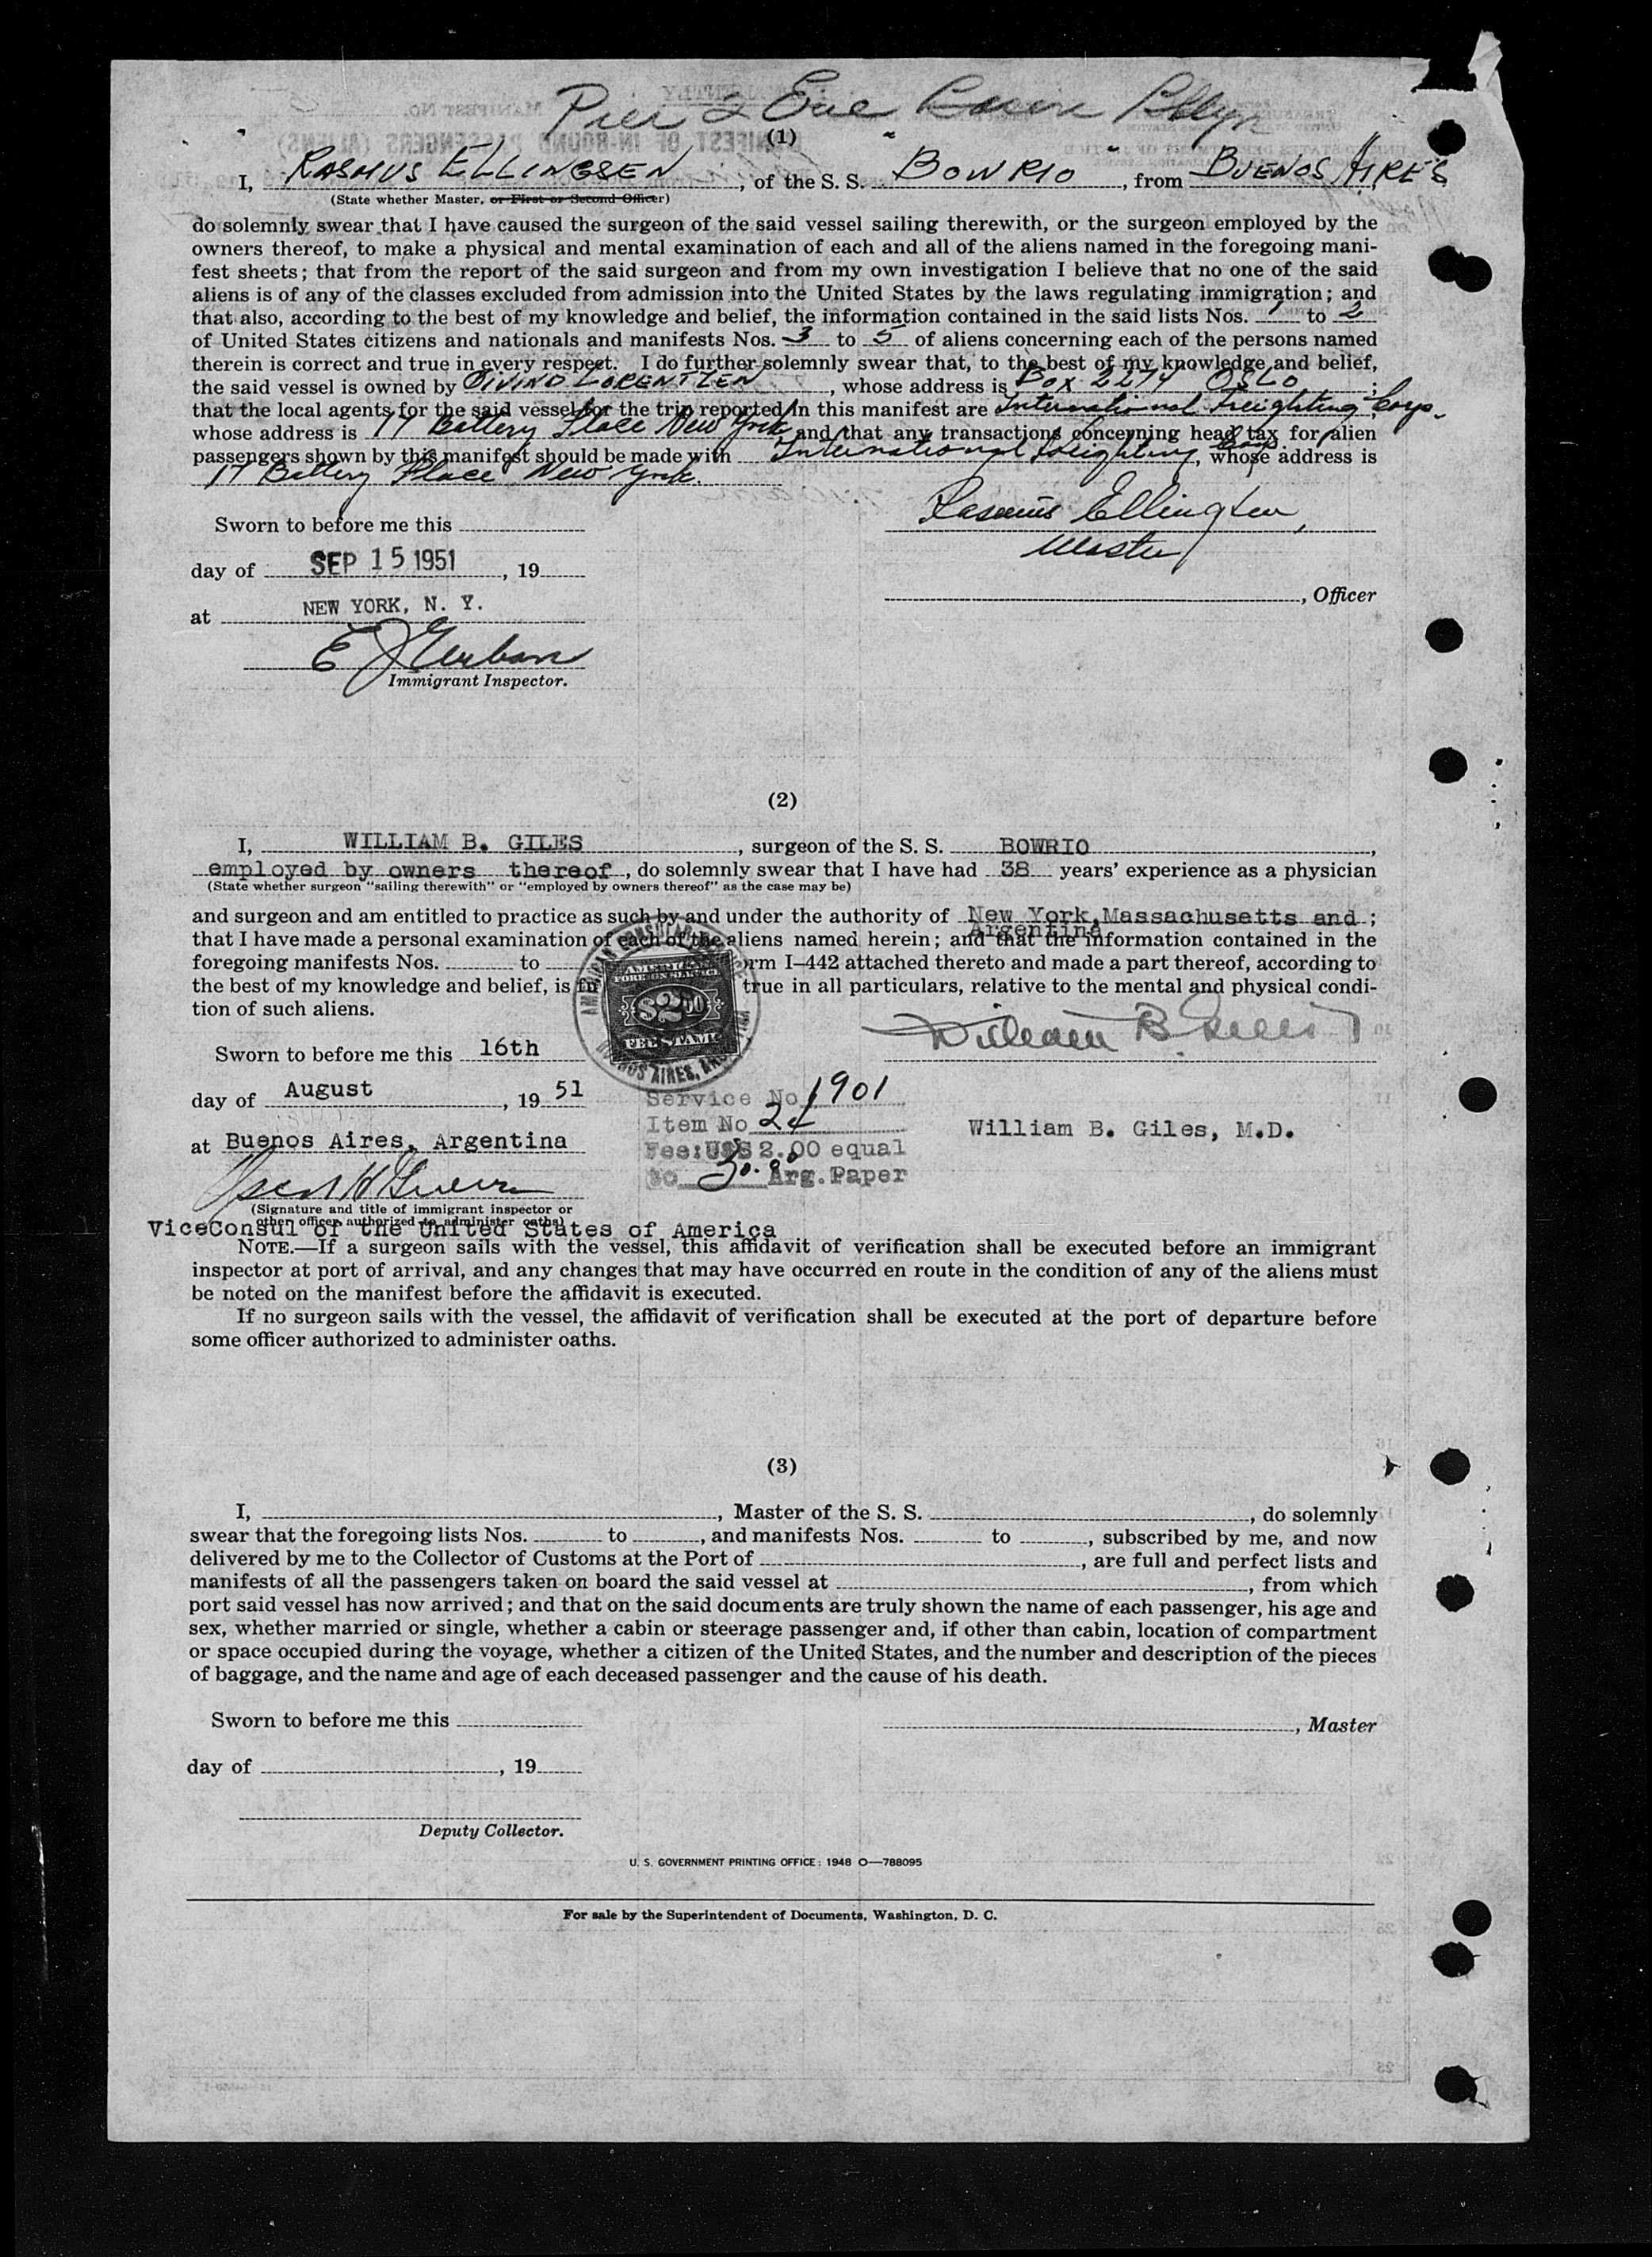 Pier 2 Erie Basin Bklyn
(1)
I, RASMUS ELLINGSEN, of the S. S. "BOWRIO", from BUENOS AIRES
(State whether Master, or First or Second Officer)
do solemnly swear that I have caused the surgeon of the said vessel sailing therewith, or the surgeon employed by the
owners thereof, to make a physical and mental examination of each and all of the aliens named in the foregoing mani-
fest sheets; that from the report of the said surgeon and from my own investigation I believe that no one of the said
aliens is of any of the classes excluded from admission into the United States by the laws regulating immigration; and
that also, according to the best of my knowledge and belief, the information contained in the said lists Nos. 1 to 2
of United States citizens and nationals and manifests Nos. 3 to 5 of aliens concerning each of the persons named
therein is correct and true in every respect. I do further solemnly swear that, to the best of my knowledge and belief,
the said vessel is owned by OIVIND LORENTZEN, whose address is BOX 2274 OSLO;
that the local agents for the said vessel for the trip reported in this manifest are International Freighting Corp.;
whose address is 17 Battery Place New York and that any transactions concerning head tax for alien
passengers shown by this manifest should be made with International Freighting Corp., whose address is
17 Battery Place New York.
Sworn to before me this
Rasmus Ellingsen,
Master
day of SEP 15 1951, 19
, Officer
at NEW YORK, N. Y.
Immigrant Inspector.
(2)
I, WILLIAM B. GILES, surgeon of the S. S. BOWRIO,
employed by owners thereof, do solemnly swear that I have had 38 years' experience as a physician
(State whether surgeon "sailing therewith" or "employed by owners thereof" as the case may be)
and surgeon and am entitled to practice as such by and under the authority of New York,Massachusetts and;
Argentina
that I have made a personal examination of each of the aliens named herein; and that the information contained in the
foregoing manifests Nos. to orm I–442 attached thereto and made a part thereof, according to
the best of my knowledge and belief, is fu true in all particulars, relative to the mental and physical condi-
tion of such aliens.
AMERICAN CONSULAR SERVICE
BUENOS AIRES, ARGENTINA
AMERICAN
FOREIGN SERVICE
$2.00
FEE STAMP
William B. Giles
Sworn to before me this 16th
day of August, 19 51
Service No 1901
Item No 24
Fee:US$ 2.00 equal
to 30.00 Arg.Paper
William B. Giles, M.D.
at Buenos Aires, Argentina
(Signature and title of immigrant inspector or
other officer authorized to administer oaths)
ViceConsul of the United States of America
NOTE.—If a surgeon sails with the vessel, this affidavit of verification shall be executed before an immigrant
inspector at port of arrival, and any changes that may have occurred en route in the condition of any of the aliens must
be noted on the manifest before the affidavit is executed.
If no surgeon sails with the vessel, the affidavit of verification shall be executed at the port of departure before
some officer authorized to administer oaths.
(3)
I, , Master of the S. S. , do solemnly
swear that the foregoing lists Nos. to , and manifests Nos. to , subscribed by me, and now
delivered by me to the Collector of Customs at the Port of , are full and perfect lists and
manifests of all the passengers taken on board the said vessel at , from which
port said vessel has now arrived; and that on the said documents are truly shown the name of each passenger, his age and
sex, whether married or single, whether a cabin or steerage passenger and, if other than cabin, location of compartment
or space occupied during the voyage, whether a citizen of the United States, and the number and description of the pieces
of baggage, and the name and age of each deceased passenger and the cause of his death.
Sworn to before me this
, Master
day of , 19
Deputy Collector.
U. S. GOVERNMENT PRINTING OFFICE: 1948 O—788095
For sale by the Superintendent of Documents, Washington, D. C.